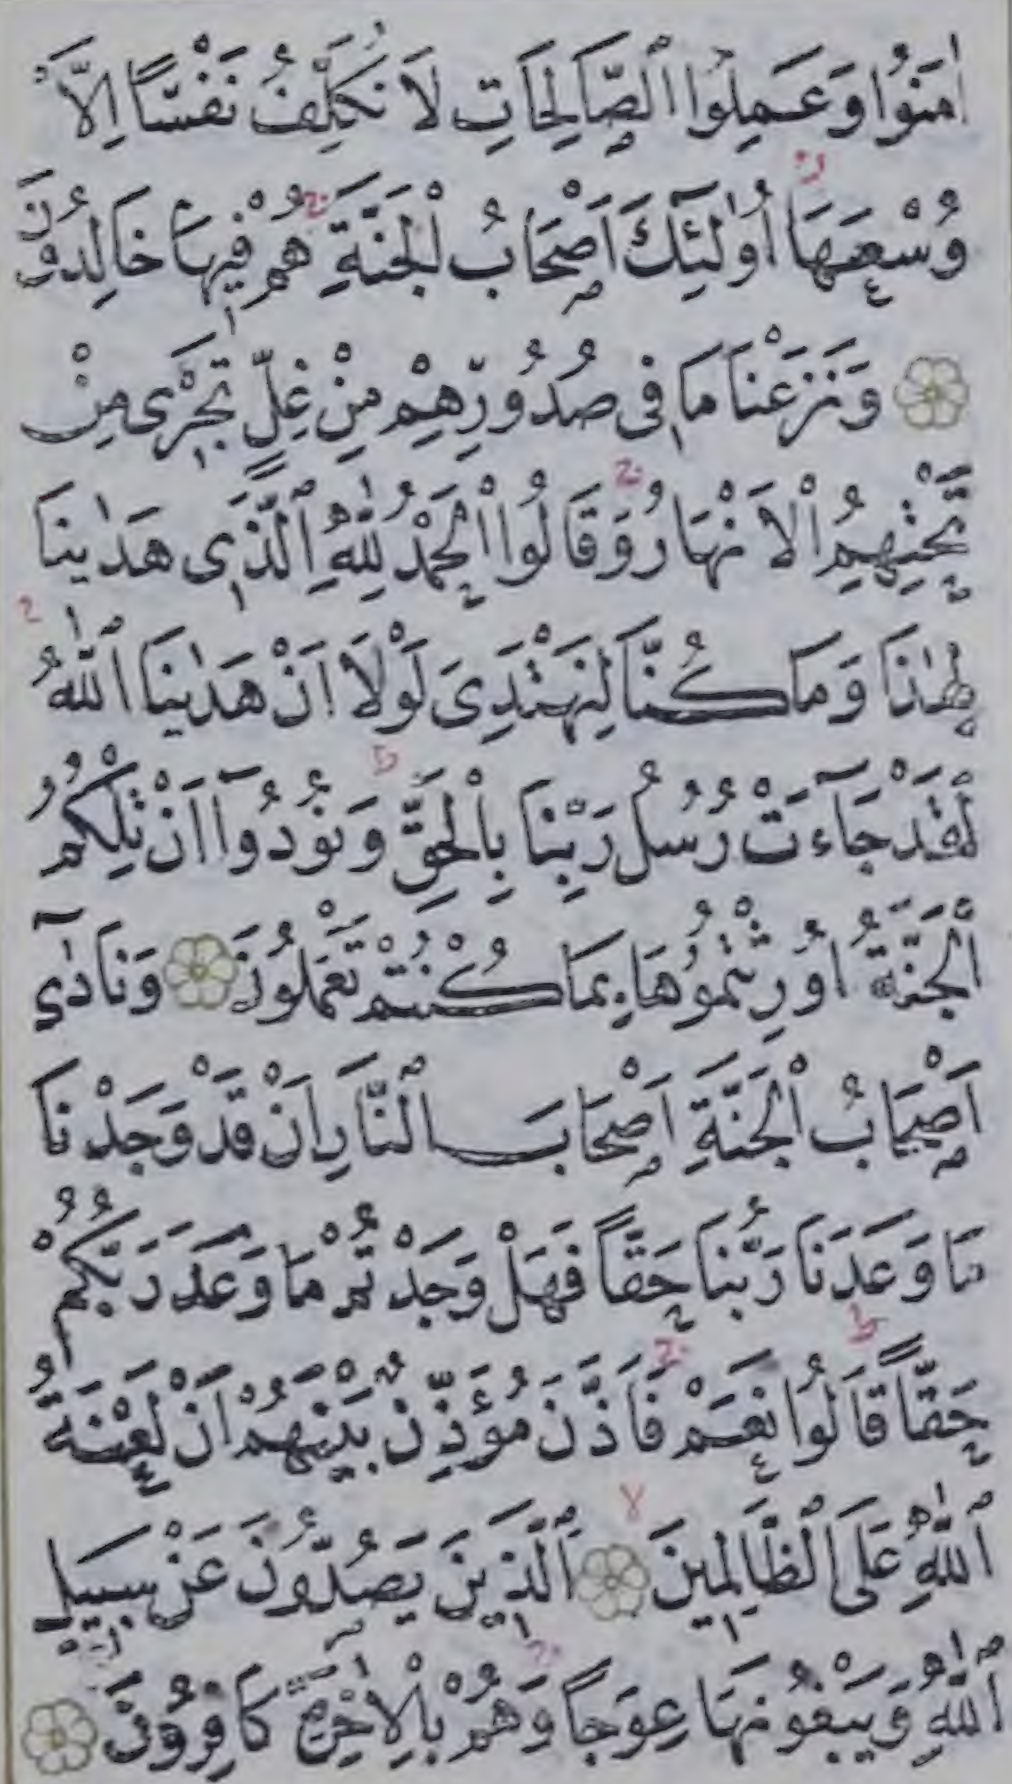 اٰمَنُوا وَعَمِلُوا ٱلصَّالِحَاتِ لَا نُكَلِّفُ نَفْسًا اِلَّا
وُسْعَهَا اُولٰٓئِكَ اَصْحَابُ ٱلْجَنَّةِ هُمْ فِيهَا خَالِدُونَ
وَنَزَعْنَا مَا فِى صُدُورِهِمْ مِنْ غِلٍّ تَجْرِى مِنْ
تَحْتِهِمُ ٱلْاَنْهَارُ وَقَالُوا ٱلْحَمْدُ لِلّٰهِ ٱلَّذِى هَدٰينَا
لِهٰذَا وَمَا كُنَّا لِنَهْتَدِىَ لَوْلَا اَنْ هَدٰينَا ٱللّٰهُ
لَقَدْ جَٓاءَتْ رُسُلُ رَبِّنَا بِالْحَقِّ وَنُودُٓوا اَنْ تِلْكُمُ
ٱلْجَنَّةُ اُورِثْتُمُوهَا بِمَا كُنْتُمْ تَعْمَلُونَ وَنَادٰٓى
اَصْحَابُ ٱلْجَنَّةِ اَصْحَابَ ٱلنَّارِ اَنْ قَدْ وَجَدْنَا
مَا وَعَدَنَا رَبُّنَا حَقًّا فَهَلْ وَجَدْتُمْ مَا وَعَدَ رَبُّكُمْ
حَقًّا قَالُوا نَعَمْ فَاَذَّنَ مُؤَذِّنٌ بَيْنَهُمْ اَنْ لَعْنَةُ
ٱللّٰهِ عَلَى ٱلظَّالِمِينَ ٱلَّذِينَ يَصُدُّونَ عَنْ سَبِيلِ
ٱللّٰهِ وَيَبْغُونَهَا عِوَجًا وَهُمْ بِالْاٰخِرَةِ كَافِرُونَ